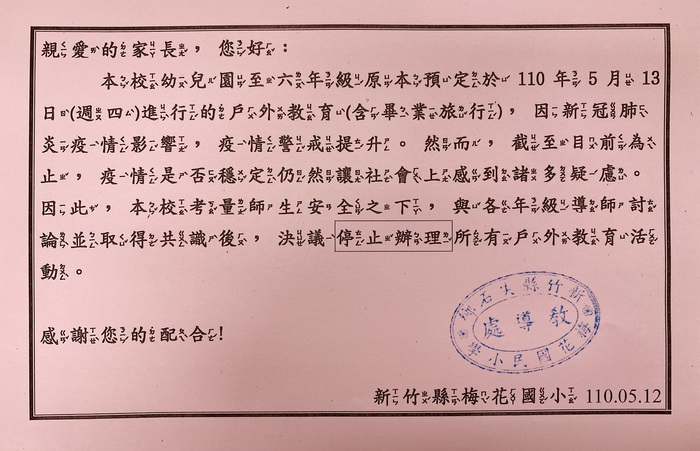 親愛的家長，您好：
本校幼兒園至六年級原本預定於 110 年 5 月 13
日(週四)進行的戶外教育(含畢業旅行)，因新冠肺
炎疫情影響，疫情警戒提升。然而，截至目前為
止，疫情是否穩定仍然讓社會上感到諸多疑慮。
因此，本校考量師生安全之下，與各年級導師討
論並取得共識後，決議停止辦理所有戶外教育活
動。
感謝您的配合!
新竹縣尖石鄉
教導處
梅花國民小學
新竹縣梅花國小 110.05.12